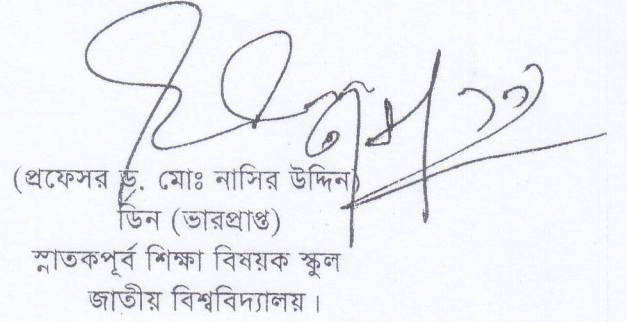 (প্রফেসর ড. মোঃ নাসির উদ্দিন)
ডিন (ভারপ্রাপ্ত)
স্নাতকপূর্ব শিক্ষা বিষয়ক স্কুল
জাতীয় বিশ্ববিদ্যালয়।